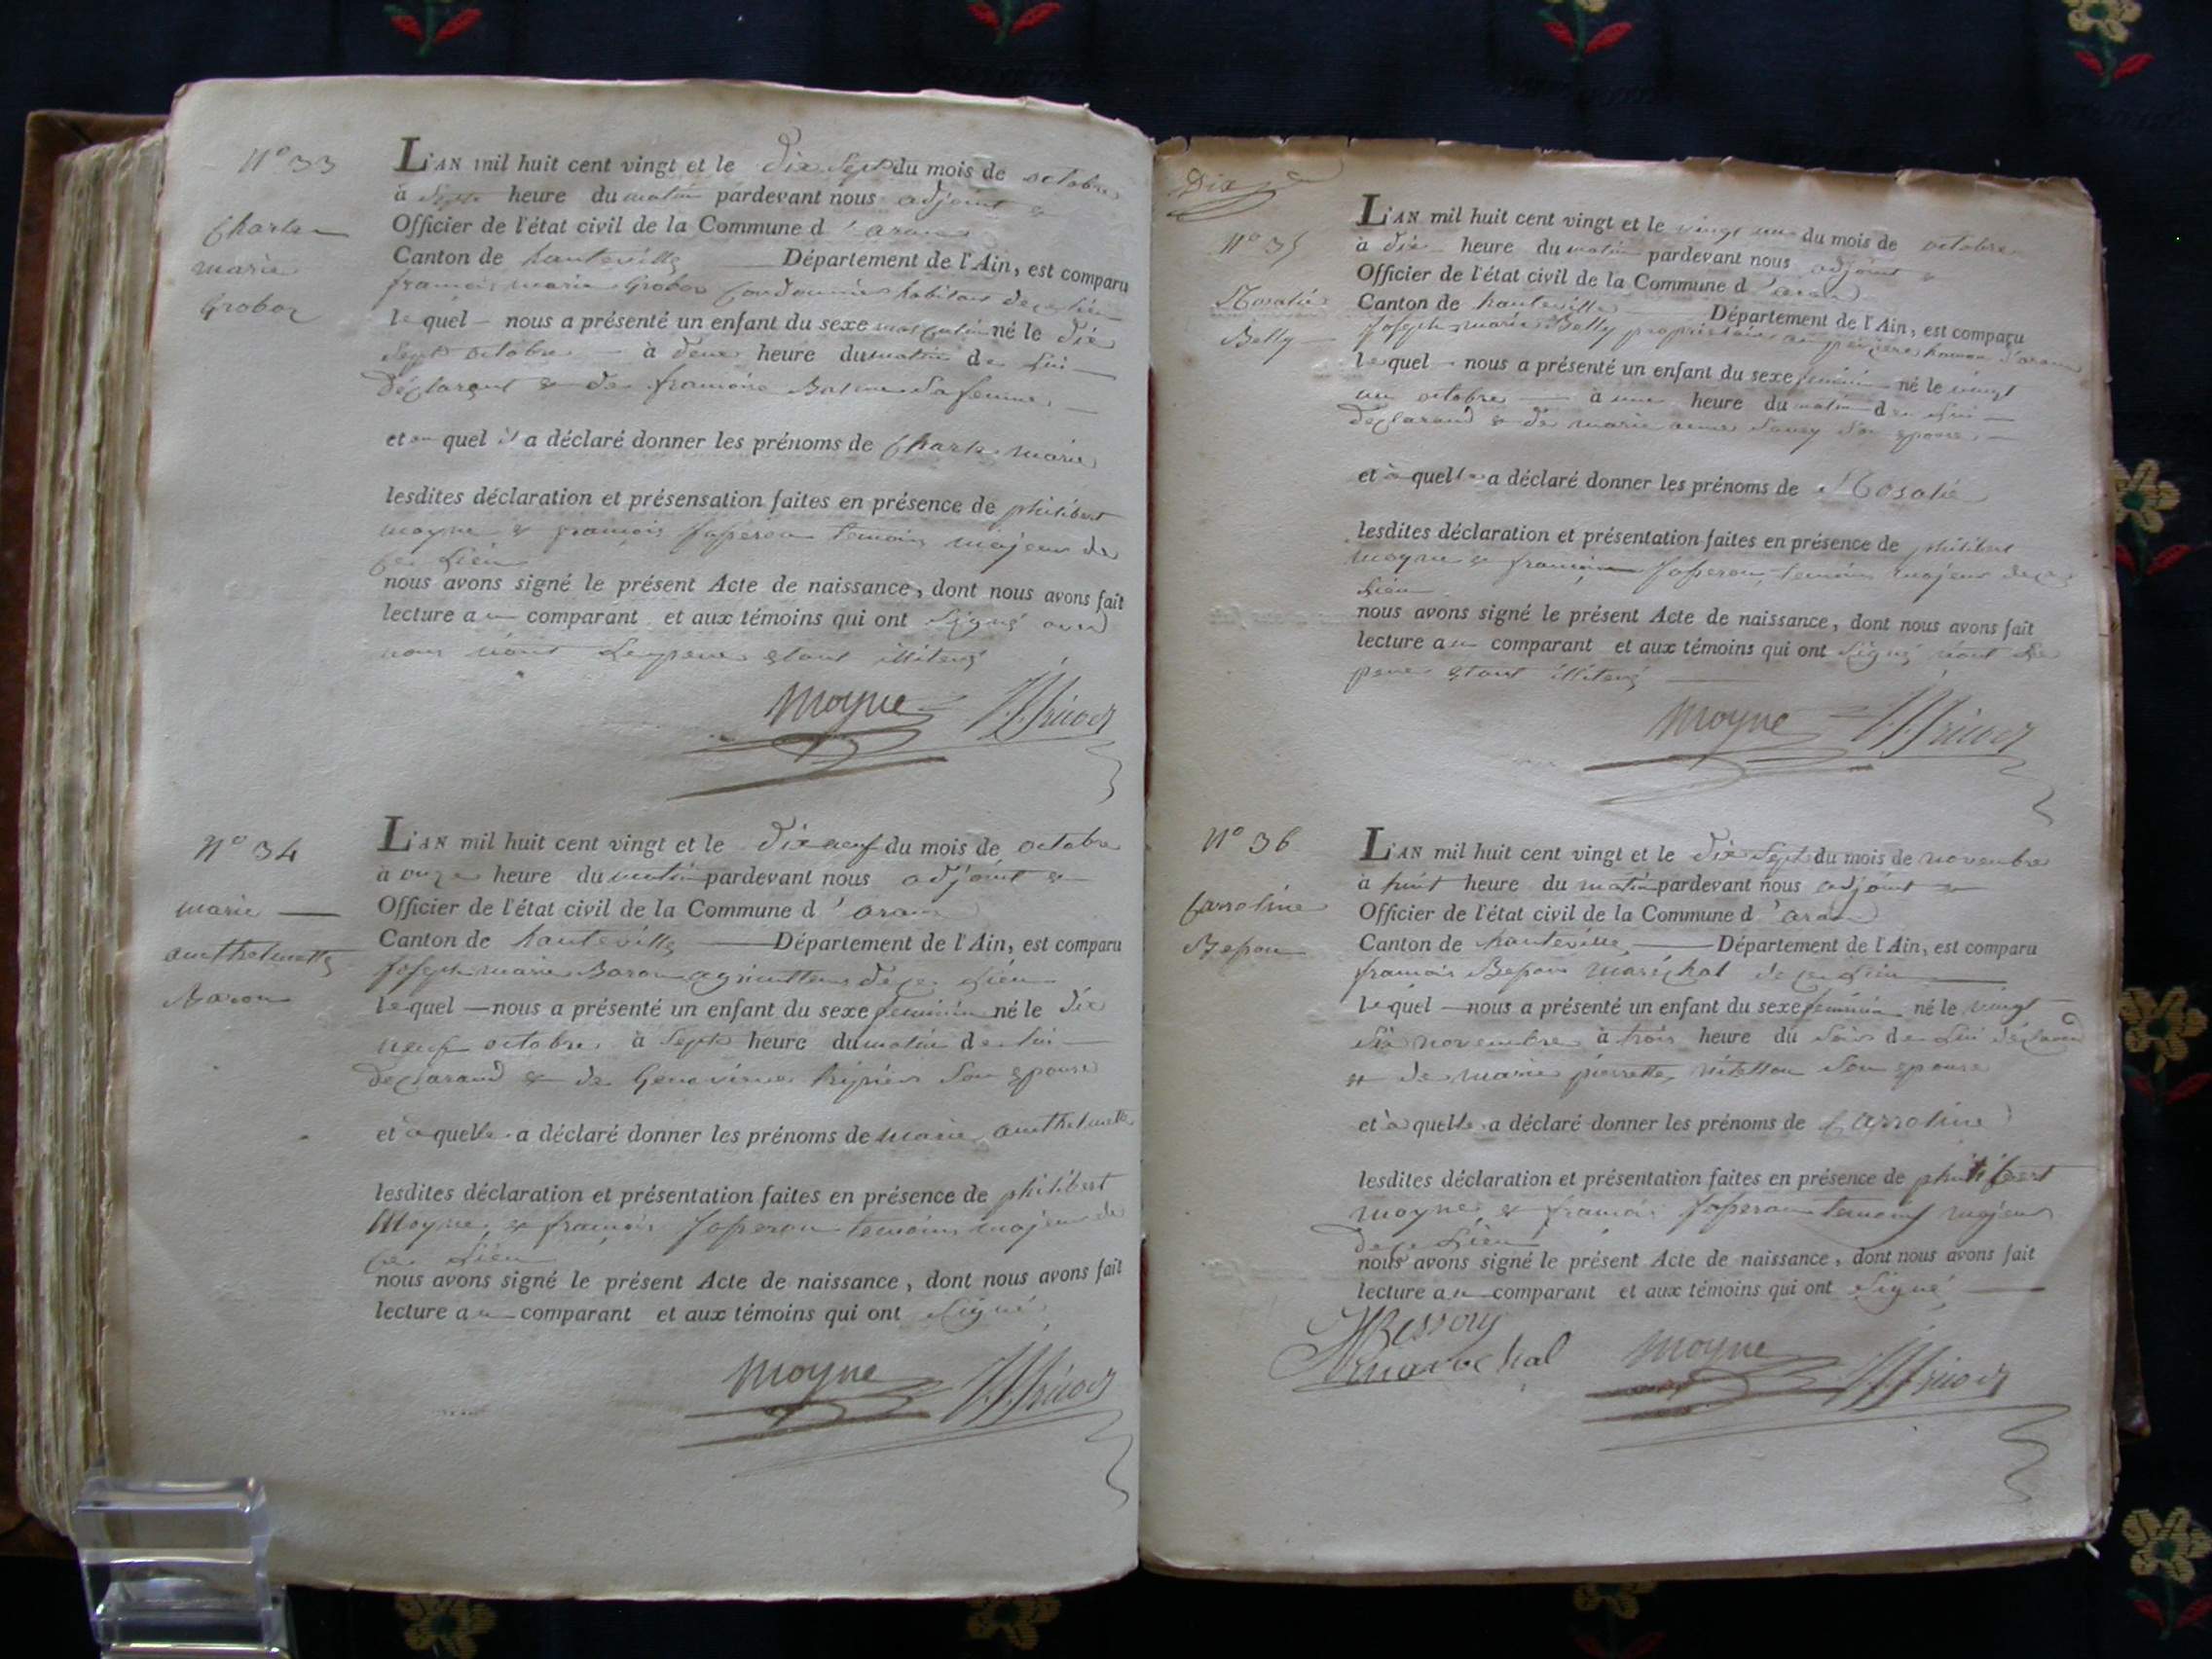 N° 33
Charle
marie
Groboz
L'AN mil huit cent vingt et le dix Sept du mois de octobre
à Sept heure du matin pardevant nous adjoint &
Officier de l'état civil de la Commune d'aran
Canton de hauteville Département de l'Ain, est comparu
francois marie Grobos Cordonnier habitant de ce lieu
le quel nous a présenté un enfant du sexe masculin né le dix
Sept octobre à deux heure du matin de lui
déclarant & de francoise Sa femme
et au quel il a déclaré donner les prénoms de Charle marie
lesdites déclaration et présensation faites en présence de philibert
moyne & francois Josperon temoins majeur de
ce Lieu
nous avons signé le présent Acte de naissance, dont nous avons fait
lecture au comparant et aux témoins qui ont Signé avec
nous non Le père étant illiteré
moyne
N° 34
marie
anthelmette
Baron
L'AN mil huit cent vingt et le dix neuf du mois de octobre
à onze heure du matin pardevant nous adjoint &
Officier de l'état civil de la Commune d'aran
Canton de hauteville Département de l'Ain, est comparu
Joseph marie Baron agriculteur de ce Lieu
le quel nous a présenté un enfant du sexe feminin né le dix
neuf octobre à Sept heure du matin de lui
declarand & de Genevieve Son epouse
et à quelle a déclaré donner les prénoms de marie anthelmette
lesdites déclaration et présentation faites en présence de philibert
Moyne & francois Josperon temoins majeur de
ce Lieu
nous avons signé le présent Acte de naissance, dont nous avons fait
lecture au comparant et aux témoins qui ont Signé
moyne
Dix
N° 35
Rosalie
Belly
L'AN mil huit cent vingt et le vingt un du mois de octobre
à dix heure du matin pardevant nous adjoint &
Officier de l'état civil de la Commune d'aran
Canton de hauteville Département de l'Ain, est comparu
Joseph marie Belly proprietaire hameau d'aran
le quel nous a présenté un enfant du sexe feminin né le vingt
un octobre à une heure du matin de lui
declarand & de marie anne Son epouse
et à quelle a déclaré donner les prénoms de Rosalie
lesdites déclaration et présentation faites en présence de philibert
moyne & francois Josperon temoins majeur de ce
Lieu
nous avons signé le présent Acte de naissance, dont nous avons fait
lecture au comparant et aux témoins qui ont Signé non Le
pere étant illiteré
moyne
N° 36
Carroline
Besson
L'AN mil huit cent vingt et le dix Sept du mois de novembre
à huit heure du matin pardevant nous adjoint &
Officier de l'état civil de la Commune d'aran
Canton de hauteville Département de l'Ain, est comparu
francois Besson maréchal de ce Lieu
le quel nous a présenté un enfant du sexe feminin né le vingt
six novembre à trois heure du Soir de Lui déclarand
& de marie pierrette Son epouse
et à quelle a déclaré donner les prénoms de Carroline
lesdites déclaration et présentation faites en présence de philibert
moyne & francois Josperon temoins majeur
de ce Lieu
nous avons signé le présent Acte de naissance, dont nous avons fait
lecture au comparant et aux témoins qui ont Signé
Besson
marechal
moyne